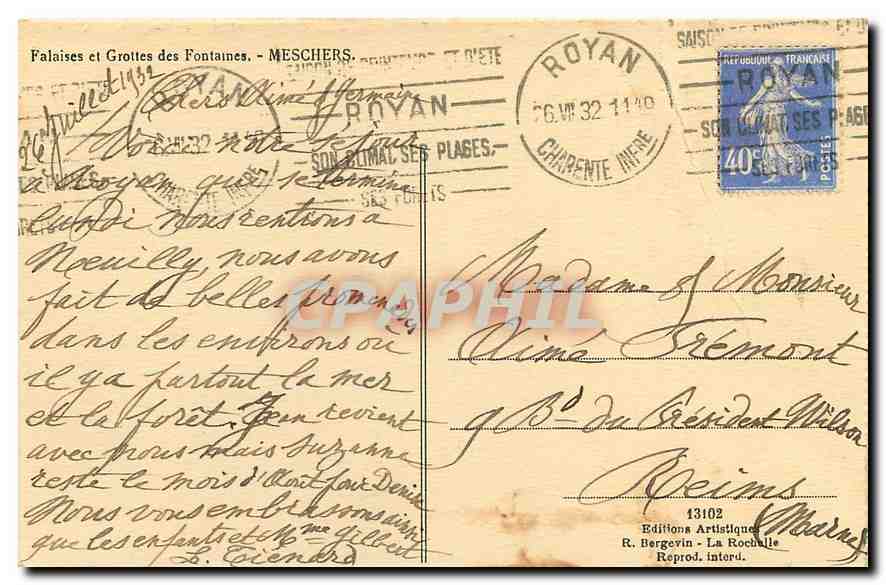 Falaises et Grottes des Fontaines. - MESCHERS.
26 Juillet 1932
Chers Aimé & Germaine
Voici notre séjour
à Royan que se termine
lundi nous rentrons à
Neuilly, nous avons
fait de belles promenades
dans les environs où
il y a partout la mer
et la forêt. Jean revient
avec nous mais Suzanne
reste le mois d'Août pour Denise
Nous vous embrassons ainsi
que les enfants et Mme Gilbert
L. Tiénard
ROYAN
26 VII 32 11 49
CHARENTE INFRE
SAISON DE PRINTEMPS ET D'ÉTÉ
ROYAN
SON CLIMAT, SES PLAGES,
SES FORÊTS
ROYAN
26 VII 32 11 49
CHARENTE INFRE
SAISON DE PRINTEMPS ET D'ÉTÉ
ROYAN
SON CLIMAT, SES PLAGES
SES FORÊTS
RÉPUBLIQUE FRANÇAISE
40c
POSTES
Madame & Monsieur
Aimé Frémont
9 Bd du Président Wilson
Reims
(Marne)
13102
Editions Artistiques
R. Bergevin - La Rochelle
Reprod. interd.
CPAPHIL